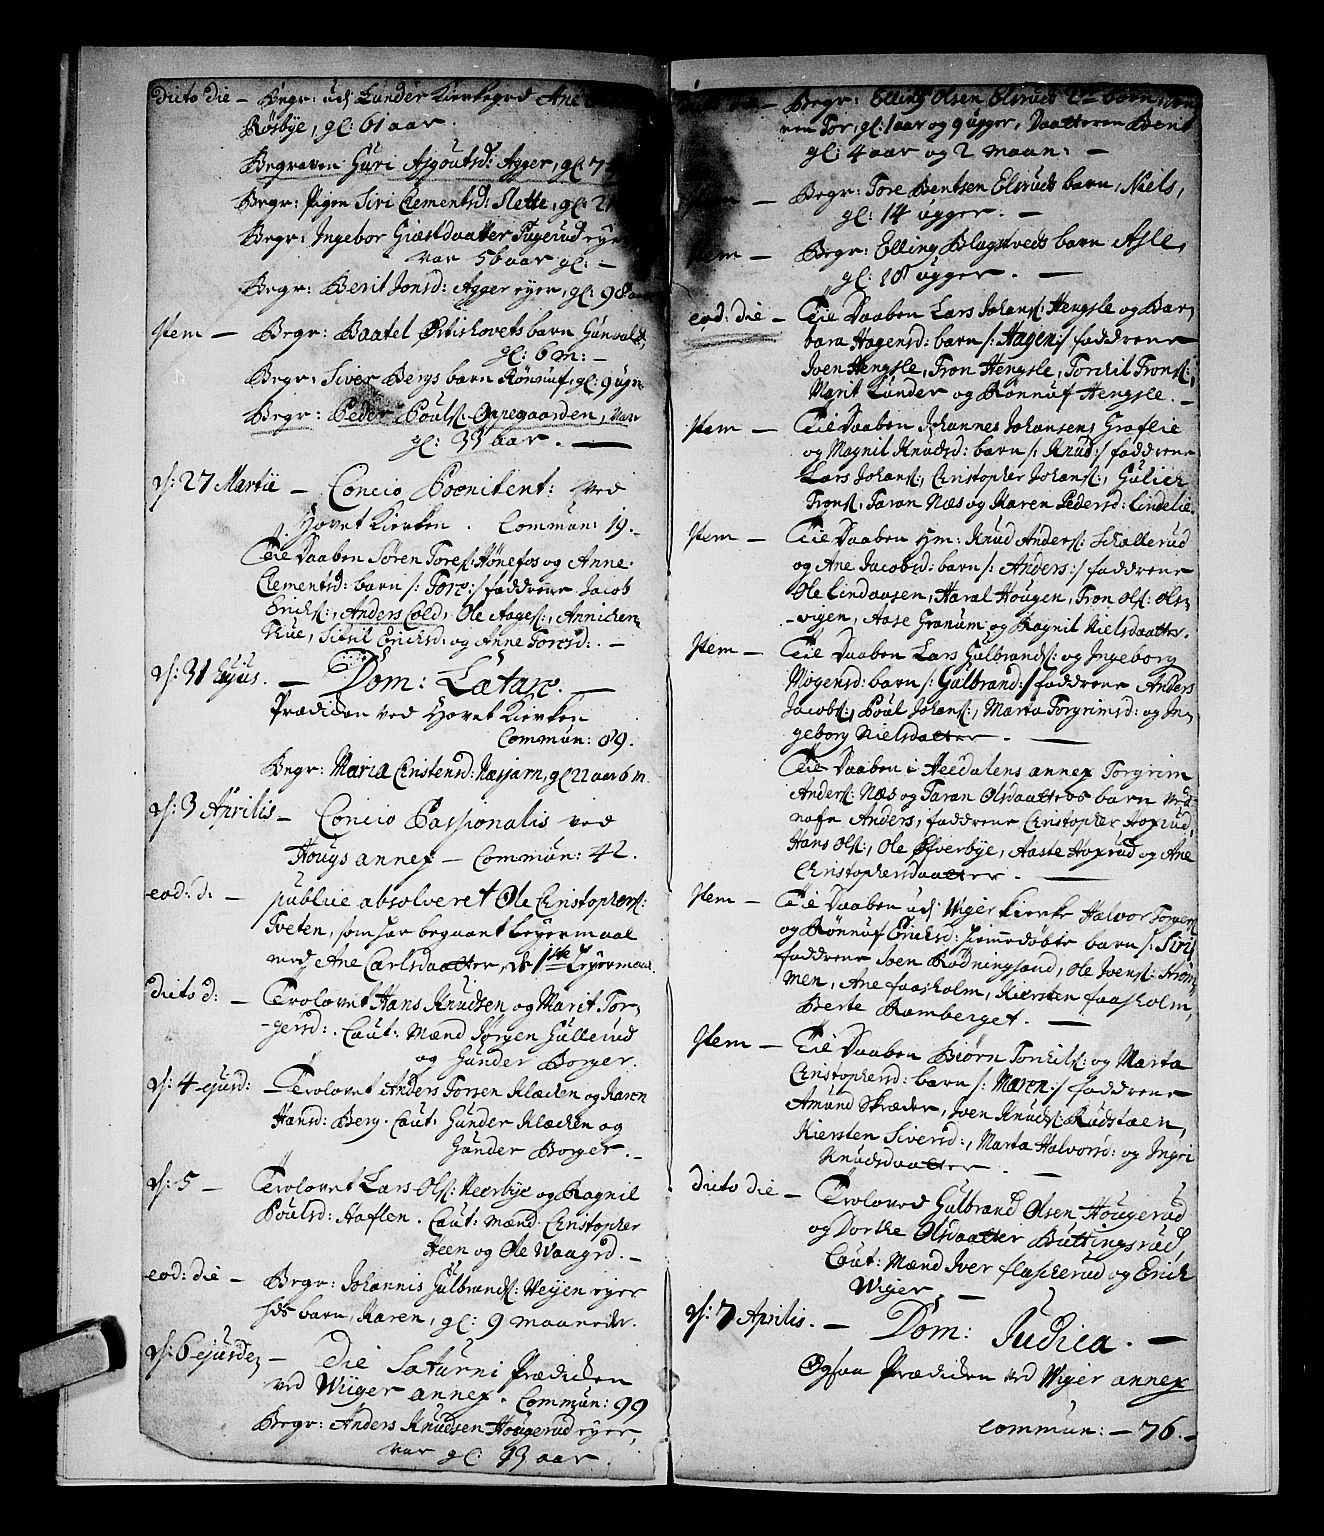 dicto die – Begr: ud. Lunder Kierkegrd Ane
Rösbye, gl: 61 aar.
Begraven Guri Asgoutsd: Agger, gl: 7
Begr: Pigen Siri Clementsd: Slette, gl: 2
Begr: Ingebor Giæstdaatter Pugerud eyer
var 56 aar gl: –
Begr: Berit Jonsd: Agger eyer, gl: 98 aar
Item – Begr: Baatel Østishovets barn Gunvald,
gl: 6 m: –
Begr: Siver Bergs barn Rönnuf, gl: 9 ugr.
Begr: Peder Poulss: Oppegaarden, var
gl: 33 aar. –
d: 27 Martii – Concio Poenitent: ved
Hovet Kierken. Commun: 19.
Til Daaben Sören Tores: Hönefos og Anne
Clementsd: barn /: Tore :/ faddrene Jacob
Ericks:, Anders Cold, Ole Aages:, Annichen
Thue, Sissil Ericksd: og Anne Toresd: –
d: 31 Ejus. – Dom: Lætare. –
Prædiken ved Hovet Kierken
Commun: 89.
Begr: Maria Christensd: Næsjarn, gl: 22 aar 6 m.
d: 3 Aprilis – Concio Passionalis ved
Hougs annex – Commun: 42.
eod: d: – publice absolveret Ole Christophers:
Tveten, som har begaaet Leyermaal
med Ane Carlsdaatter, de 1ste Leyermaal.
dicto d: – Trolovet Hans Knudsen og Marit Tor-
-gersd: Caut: Mænd Jörgen Gullerud
og Gunder Borger.
d: 4 ejusd: – Trolovet Anders Torsen Klæcken og Karen
Hansd: Berg. Caut: Gunder Klæcken og
Gunder Borger. –
d: 5 – Trolovet Lars Ols: Heerbye og Ragnil
Poulsd: Haflen. Caut: Mænd Christopher
Heen og Ole Waagrd. –
eod: die – Begr: Johannis Gulbrands: Weyen eyer
hds barn, Karen, gl: 9 maaneder.
d: 6 ejusdem – Die Saturni Prædiken
ved Wiiger annex. Commun: 99
Begr: Anders Knudsen Hougerud eyer,
var gl: 83 aar.
dicto die – Begr: Elling Olsen Elsruds 2de børn, søn-
nen Tor, gl: 1 aar og 9 ugger, Daatteren Berit
gl: 4 aar og 2 maan: –
Item – Begr: Tore Bentsen Elsruds barn, Niels,
gl: 14 ugger. –
Item – Begr: Elling Blagstveds barn Asle,
gl: 18 ugger. –
eod: die – Til Daaben Lars Johans: Hengsle og Bar-
bara Hagensd: barn /: Hagen :/ faddrene
Iven Hengsle, Tron Hengsle, Torckil Trons:,
Marit Lunder og Rönnuf Hengsle. –
Item – Til Daaben Johannes Johansens Graflie
og Magnil Knudsd: barn /: Knud :/ faddrene
Lars Johans:, Christopher Johans:, Gulich
Trons:, Taran Næs og Karen Pedersd: Lindelie.
Item – Til Daaben Hm: Knud Anders: Schallerud
og Ane Jacobsd: barn /: Anders :/ faddrene
Ole Lindaasen, Haral Hougen, Tron Ols: Ols-
-vigen, Aase Granum og Ragnil Nielsdaatter.
Item – Til Daaben Lars Gulbrands: og Ingeborg
Mogensd: barn /: Gulbrand :/ faddrene Anders
Jacobs:, Poul Johans:, Marta Torgrimsd: og In-
geborg Nielsdaatter. –
Til Daaben i Heedalens annex Torgrim
Anders: Næs og Taran Olsdaatters barn ved
nafn Anders, faddrene Christopher Hoxrud,
Hans Ols:, Ole Øfverbye, Aaste Hoxrud og Ane
Christophersdaatter. –
Item – Til Daaben ud. Wiger Kierke Halvor Torgers:
og Rönnuf Ericksd: hiemmedøbte barn /: Siri
faddrene Iven Rodningsand, Ole Ivens: Hröm-
men, Ane faasholm, Kiersten faasholm,
Berte Ramberget. –
Item – Til Daaben Biörn Torckils: og Marta
Christophersd: barn /: Maren :/ faddrene
Amund Skræder, Iven Knuds: Rudstøen,
Kiersten Siversd:, Marta Halvorsd: og Ingri
Knudsdaatter. –
dicto die – Troloved Gulbrand Olsen Hougerud
og Dorthe Olsdaatter Buttingsrud,
Caut: Mænd Iver flaskerud og Erick
Wiger. –
d: 7 Aprilis. – Dom: Judica. –
Ogsaa Prædiken ved Wiger annex
Commun: – 76. –